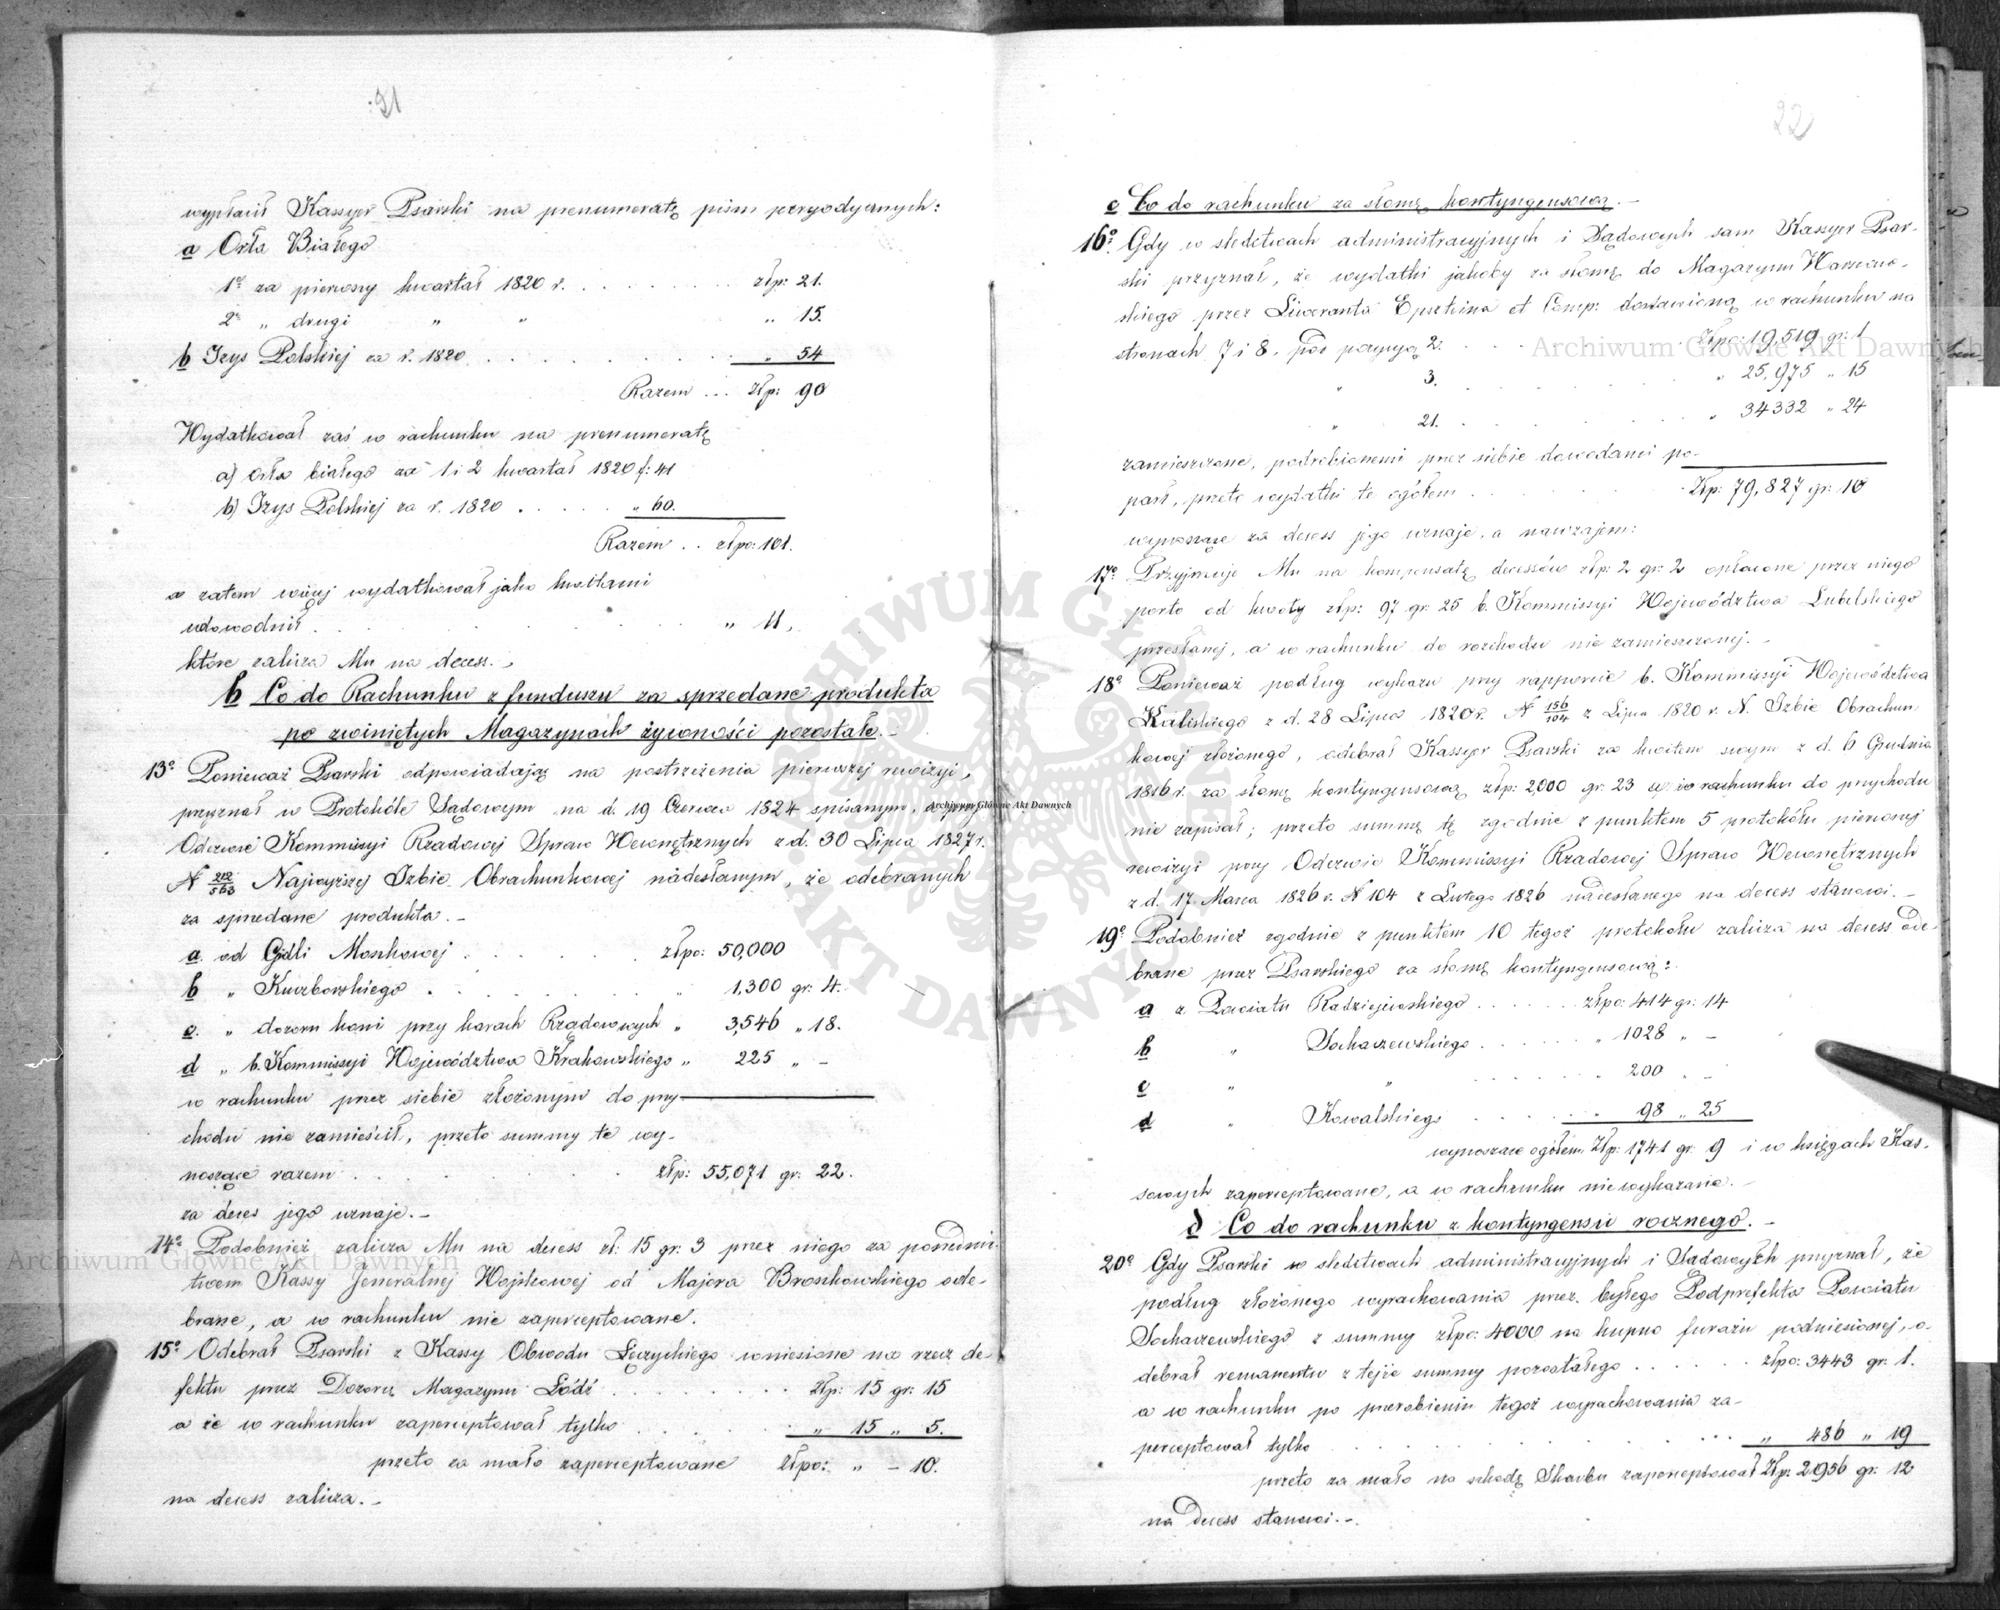 21
wypłacił Kassyer Psarski na prenumeratę pism peryodycznych:
a Orła Białego
1o za pierwszy kwartał 1820 r. . . . . . . . złp: 21.
2o „ drugi „ „ „ 15.
b Izys Polskiej za r. 1820 . . . . . . . . „ 54
Razem ... złp: 90
Wydatkował zaś w rachunku na prenumeratę
a) Orła białego za 1 i 2 kwartał 1820 f: 41
b) Izys Polskiej za r. 1820 . . . . . „ 60.
Razem . . złpo: 101.
a zatem więcej wydatkował jako kwitami
udowodnił . . . . . . . . „ 11,
które zalicza Mu na decess. -
b Co do Rachunku z funduszu za sprzedane produkta
po zwiniętych Magazynach żywności pozostałe. -
13o Ponieważ Psarski odpowiadając na postrzeżenia pierwszej rewizyi,
przyznał w Protokóle Sądowym na d. 19 Czerwca 1824 spisanym, a przy
Odezwie Kommissyi Rządowej Spraw Wewnętrznych z d. 30 Lipca 1827 r.
N 212/563 Najwyższej Izbie Obrachunkowej nadesłanym, że odebranych
za sprzedane produkta. -
a. od Gidli Moszkowej . . . . . . złpo: 50,000
b „ Kuczborskiego . . . . . „ 1,300 gr: 4.
c. „ dozoru koni przy karach Rządowych „ 3,546 „ 18.
d „ b. Kommissyi Województwa Krakowskiego „ 225 „ -
w rachunku przez siebie złożonym do przy-
chodu nie zamieścił, przeto summy te wy-
noszące razem . . . . . . . złp: 55,071 gr: 22.
za deces jego uznaje. -
14o Podobnież zalicza Mu na decess zł: 15 gr: 3 przez niego za pośrednic-
twem Kassy Jeneralnej Wojskowej od Majora Broszkowskiego ode-
brane, a w rachunku nie zaperceptowane.
15o Odebrał Psarski z Kassy Obwodu Łęczyckiego wniesione na rzecz de-
fektu przez Dozorcę Magazynu Łódź . . . . . . . złp: 15 gr: 15
a że w rachunku zaperceptował tylko . . . . . „ 15 „ 5.
przeto za mało zaperceptowane złpo: „ - 10.
na decess zalicza. -
22
c Co do rachunku za słomę kontyngensową. -
16o Gdy w śledztwach administracyjnych i Sądowych sam Kassyer Psar-
ski przyznał, że wydatki jakoby za słomę do Magazynu Warszaw-
skiego przez Liweranta Epszteina et Comp: dostawioną w rachunku na
stronach 7 i 8. pod pozycyą 2. . . . . . . złpo: 19,519 gr: 1
„ 3. . . . . . . . . „ 25,975 „ 15
„ 21. . . . . . . . „ 34332 „ 24
zamieszczone, podrobionemi przez siebie dowodami po-
parł, przeto wydatki te ogółem . . . . . . . złp: 79,827 gr: 10
wynoszące za decess jego uznaje, a nawzajem:
17o Przyjmuje Mu na kompensatę decessów złp: 2 gr: 2 opłacone przez niego
porto od kwoty złp: 97 gr: 25 b. Kommissyi Województwa Lubelskiego
przesłanej, a w rachunku do rozchodu nie zamieszczonej. -
18o Ponieważ podług wykazu przy rapporcie b. Kommissyi Województwa
Kaliskiego z d. 28 Lipca 1820 r. N 156/104 z Lipca 1820 r. N. Izbie Obrachun
kowej złożonego, odebrał Kassyer Psarski za kwitem swym z d. 6 Grudnia
1816 r. za słomę kontyngensową złp: 2,000 gr: 23 a w rachunku do przychodu
nie zapisał; przeto summę tę zgodnie z punktem 5 protokółu pierwszej
rewizyi przy Odezwie Kommissyi Rządowej Spraw Wewnętrznych
z d. 17 Marca 1826 r. N 104 z Lutego 1826 nadesłanego na decess stanowi. -
19o Podobnież zgodnie z punktem 10 tegoż protokołu zalicza na decess ode-
brane przez Psarskiego za słomę kontyngensową:
a z Powiatu Radziejewskiego . . . . . . złpo: 414 gr: 14
b „ Sochaczewskiego . . . . . . „ 1028 „ -
c „ „ . . . . . . „ 200 „ -
d „ Kowalskiego . . . . . . „ 98 „ 25
wynoszące ogółem złp: 1741 gr: 9 i w księgach Kas-
sowych zaperceptowane, a w rachunku niewykazane. -
d Co do rachunku z kontyngensu rocznego. -
20o Gdy Psarski w śledztwach administracyjnych i Sądowych przyznał, że
podług złożonego wyrachowania przez byłego Podprefekta Powiatu
Sochaczewskiego z summy złpo: 4000 na kupno furażu podniesionej, o-
debrał remanentu z tejże summy pozostałego . . . . . . złpo: 3443 gr: 1.
a w rachunku po przerobieniu tegoż wyrachowania za-
perceptował tylko . . . . . . . . . „ 486 „ 19
przeto za mało na szkodę Skarbu zaperceptował złp: 2,956 gr: 12
na decess stanowi. -.
Archiwum Główne Akt Dawnych
Archiwum Główne Akt Dawnych
Archiwum Główne Akt Dawnych
ARCHIWUM GŁÓWNE AKT DAWNYCH